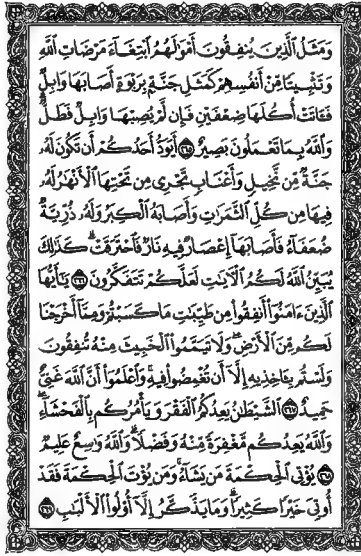 وَمَثَلُ ٱلَّذِينَ يُنفِقُونَ أَمْوَٰلَهُمُ ٱبْتِغَآءَ مَرْضَاتِ ٱللَّهِ
وَتَثْبِيتًا مِّنْ أَنفُسِهِمْ كَمَثَلِ جَنَّةٍۭ بِرَبْوَةٍ أَصَابَهَا وَابِلٌ
فَـَٔاتَتْ أُكُلَهَا ضِعْفَيْنِ فَإِن لَّمْ يُصِبْهَا وَابِلٌ فَطَلٌّ ۗ
وَٱللَّهُ بِمَا تَعْمَلُونَ بَصِيرٌ ٢٦٥ أَيَوَدُّ أَحَدُكُمْ أَن تَكُونَ لَهُۥ
جَنَّةٌ مِّن نَّخِيلٍ وَأَعْنَابٍ تَجْرِى مِن تَحْتِهَا ٱلْأَنْهَٰرُ لَهُۥ
فِيهَا مِن كُلِّ ٱلثَّمَرَٰتِ وَأَصَابَهُ ٱلْكِبَرُ وَلَهُۥ ذُرِّيَّةٌ
ضُعَفَآءُ فَأَصَابَهَآ إِعْصَارٌ فِيهِ نَارٌ فَٱحْتَرَقَتْ ۗ كَذَٰلِكَ
يُبَيِّنُ ٱللَّهُ لَكُمُ ٱلْـَٔايَٰتِ لَعَلَّكُمْ تَتَفَكَّرُونَ ٢٦٦ يَٰٓأَيُّهَا
ٱلَّذِينَ ءَامَنُوٓا۟ أَنفِقُوا۟ مِن طَيِّبَٰتِ مَا كَسَبْتُمْ وَمِمَّآ أَخْرَجْنَا
لَكُم مِّنَ ٱلْأَرْضِ ۖ وَلَا تَيَمَّمُوا۟ ٱلْخَبِيثَ مِنْهُ تُنفِقُونَ
وَلَسْتُم بِـَٔاخِذِيهِ إِلَّآ أَن تُغْمِضُوا۟ فِيهِ ۚ وَٱعْلَمُوٓا۟ أَنَّ ٱللَّهَ غَنِىٌّ
حَمِيدٌ ٢٦٧ ٱلشَّيْطَٰنُ يَعِدُكُمُ ٱلْفَقْرَ وَيَأْمُرُكُم بِٱلْفَحْشَآءِ ۖ
وَٱللَّهُ يَعِدُكُم مَّغْفِرَةً مِّنْهُ وَفَضْلًا ۗ وَٱللَّهُ وَٰسِعٌ عَلِيمٌ
٢٦٨ يُؤْتِى ٱلْحِكْمَةَ مَن يَشَآءُ ۚ وَمَن يُؤْتَ ٱلْحِكْمَةَ فَقَدْ
أُوتِىَ خَيْرًا كَثِيرًا ۗ وَمَا يَذَّكَّرُ إِلَّآ أُو۟لُوا۟ ٱلْأَلْبَٰبِ ٢٦٩